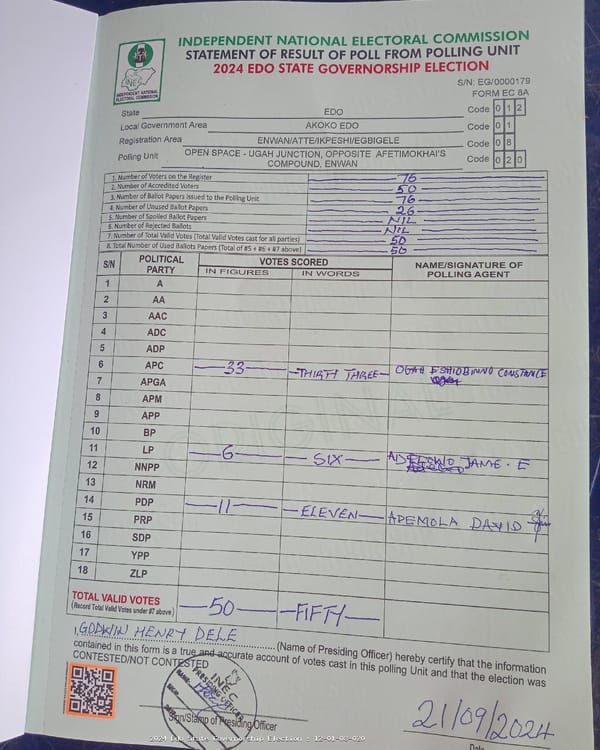 INDEPENDENT NATIONAL ELECTORAL COMMISSION
STATEMENT OF RESULT OF POLL FROM POLLING UNIT
2024 EDO STATE GOVERNORSHIP ELECTION
INEC
INDEPENDENT NATIONAL ELECTORAL COMMISSION
S/N: EG/0000179
FORM EC 8A
State EDO Code 0 1 2
Local Government Area AKOKO EDO Code 0 1
Registration Area ENWAN/ATTE/IKPESHI/EGBIGELE Code 0 8
Polling Unit OPEN SPACE - UGAH JUNCTION, OPPOSITE AFETIMOKHAI'S COMPOUND, ENWAN Code 0 2 0
1. Number of Voters on the Register 76
2. Number of Accredited Voters 50
3. Number of Ballot Papers Issued to the Polling Unit 76
4. Number of Unused Ballot Papers 26
5. Number of Spoiled Ballot Papers NIL
6. Number of Rejected Ballots NIL
7. Number of Total Valid Votes (Total Valid Votes cast for all parties) 50
8. Total Number of Used Ballots Papers (Total of #5 + #6 + #7 above) 50
S/N POLITICAL PARTY VOTES SCORED NAME/SIGNATURE OF POLLING AGENT
IN FIGURES IN WORDS
1 A
2 AA
3 AAC
4 ADC
5 ADP
6 APC 33 THIRTY THREE OGAH ESHIOBINNO CONSTANCE
7 APGA
8 APM
9 APP
10 BP
11 LP 6 SIX JAME. E
12 NNPP
13 NRM
14 PDP 11 ELEVEN ADEMOLA DAVID
15 PRP
16 SDP
17 YPP
18 ZLP
TOTAL VALID VOTES 50 FIFTY
(Record Total Valid Votes under #7 above)
I, GODWIN HENRY DELE (Name of Presiding Officer) hereby certify that the information
contained in this form is a true and accurate account of votes cast in this polling Unit and that the election was
CONTESTED/NOT CONTESTED
INEC
PRESIDING OFFICER
Sign/Stamp of Presiding Officer
21/09/2024
Date
2024 Edo State Governorship Election - 12-01-08-020